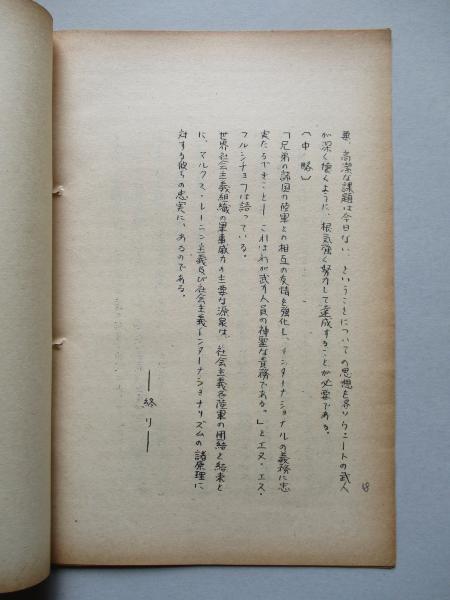 要、高潔な課題は今日ない、ということについての思想を各ソヴェートの武人
が深く懐くように、根気強く努力して達成することが必要である。
(中略)
「兄弟の諸国の陸軍との相互の友情を強化し、インターナショナルの義務に忠
実たるべきこと―これはわが武力人員の神聖な責務である。」とエヌ・エス・
フルシチョフは語っている。
世界社会主義組織の軍事威力の主要な源泉は、社会主義各陸軍の団結と結束と
に、マルクス・レーニン主義及び社会主義インターナショナリズムの諸原理に
対する彼らの忠実に、あるのである。
――終り――